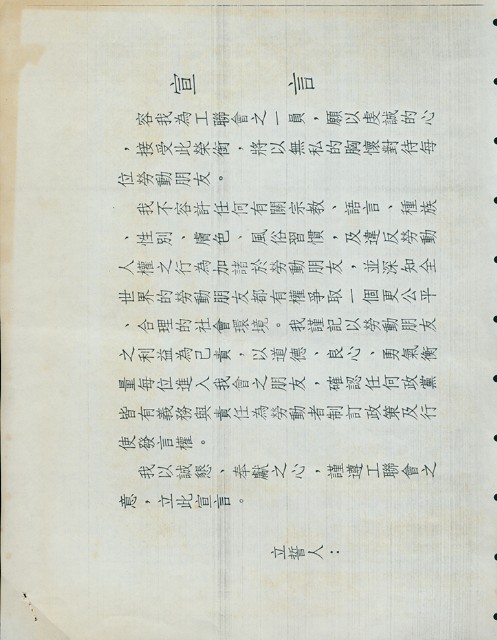 宣言
容我為工聯會之一員，願以虔誠的心
，接受此榮銜，將以無私的胸懷對待每
位勞動朋友。
我不容許任何有關宗教、語言、種族
、性別、膚色、風俗習慣，及違反勞動
人權之行為加諸於勞動朋友，並深知全
世界的勞動朋友都有權爭取一個更公平
、合理的社會環境。我謹記以勞動朋友
之利益為己責，以道德、良心、勇氣衡
量每位進入我會之朋友，確認任何政黨
皆有義務與責任為勞動者制訂政策及行
使發言權。
我以誠懇、奉獻之心，謹遵工聯會之
意，立此宣言。
立誓人：